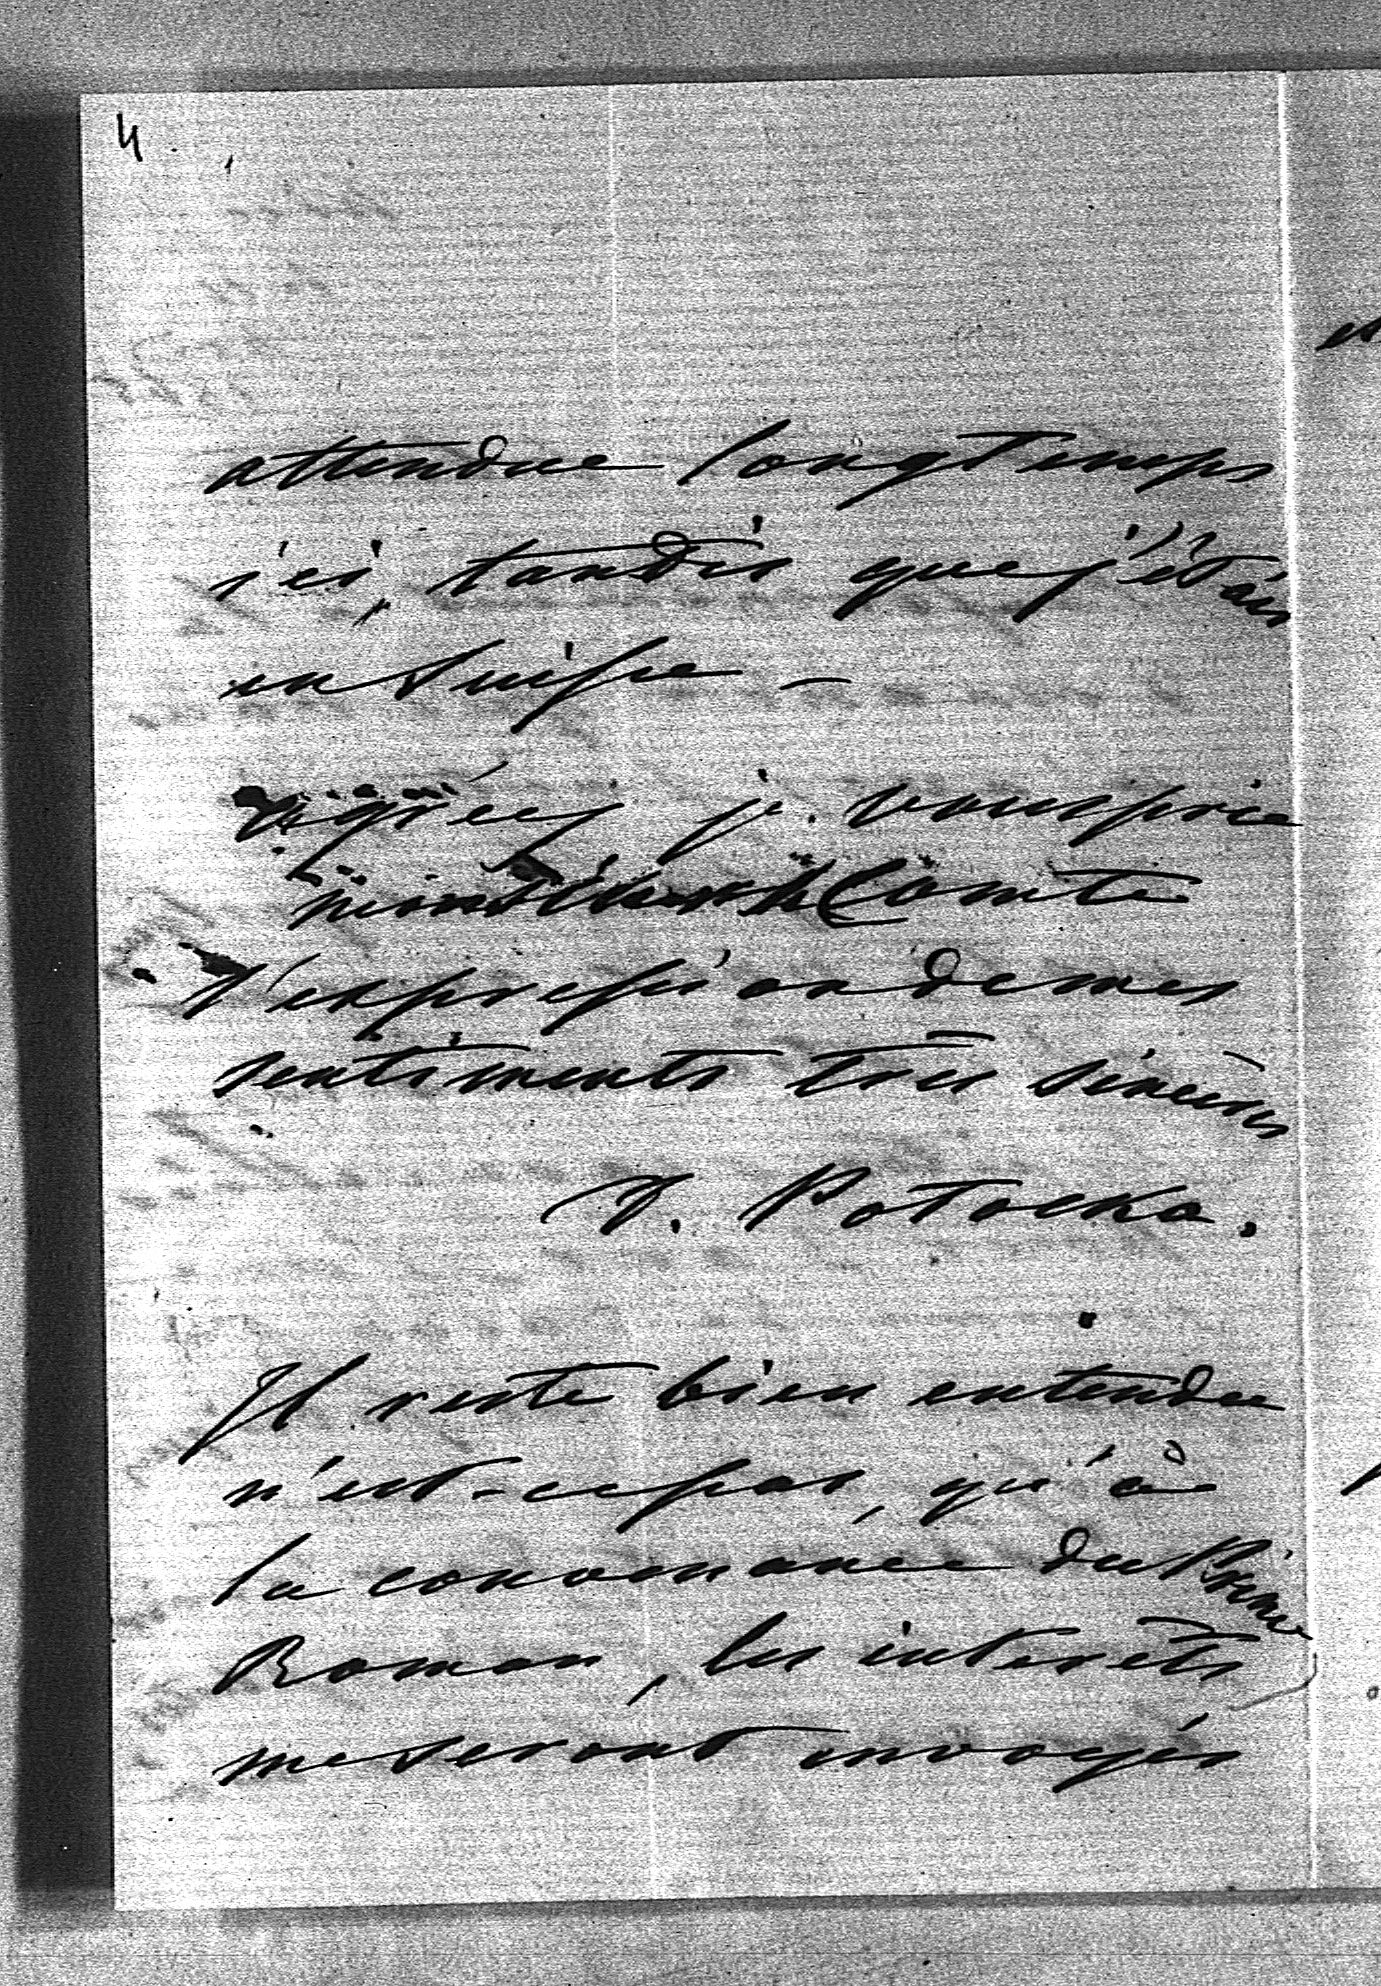 4
attendue longtemps
ici, tandis que j'étais
en Suisse –
Agréez je vous prie
Comte
l'expression de mes
sentiments très sincères
J. Potocka.
Il reste bien entendu
n'est-ce pas, qu'à
la convenance du Prince
Roman, les intérêts
me seront envoyés